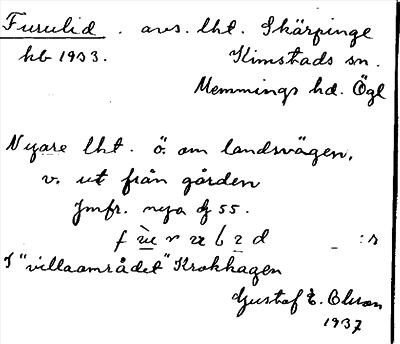 Furulid. avs. lht. Skärpinge
hb 1933. Kimstads sn.
Memmings hd. Ögl
Nyare lht. ö. om landsvägen,
v. ut från gården
Jmfr. nya 55.
f d _ :s
I "villaområdet" Krokhagen
Gustaf E. Olson
1937